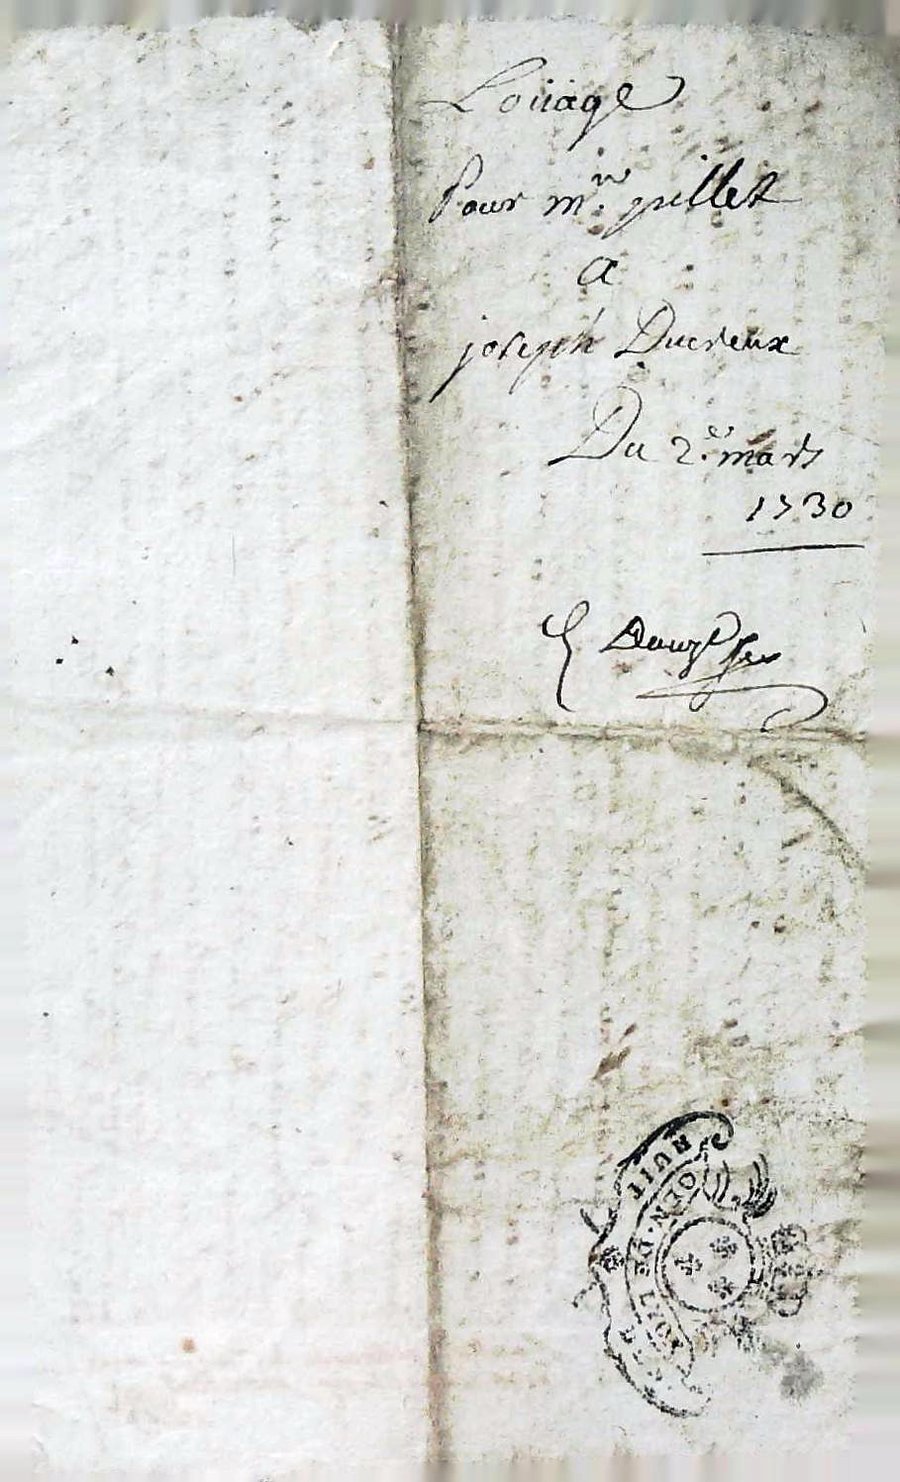 Loüage
Pour mr. juillet
a
joseph Ducreux
Du 2e. mars
1730
HUIT
GEN. DE